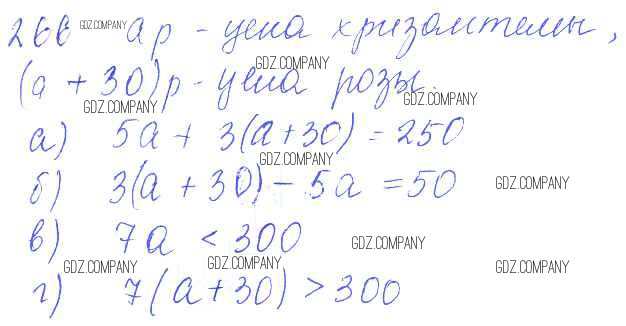 266 GDZ.COMPANY а р - цена хризантемы,
GDZ.COMPANY
(а + 30)р - цена розы.
GDZ.COMPANY GDZ.COMPANY
а) 5а + 3(а+30) = 250
GDZ.COMPANY
б) 3(а + 30) - 5а = 50 GDZ.COMPANY
в) 7а < 300 GDZ.COMPANY
GDZ.COMPANY GDZ.COMPANY GDZ.COMPANY
г) 7(а+30) > 300